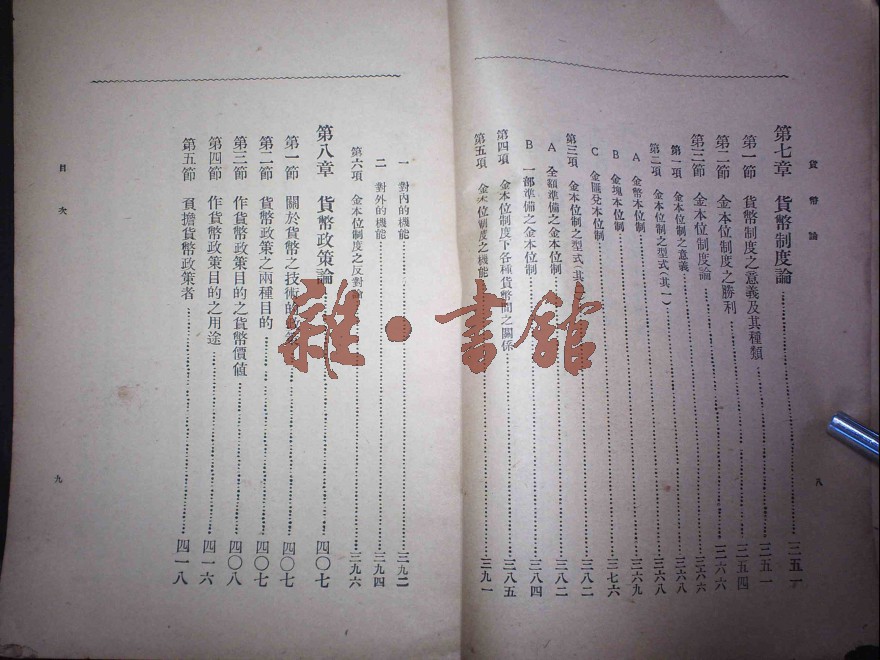 貨幣論
八
第七章 貨幣制度論……三五一
第一節 貨幣制度之意義及其種類……三五一
第二節 金本位制度之勝利……三五四
第三節 金本位制度論……三六六
第一項 金本位制之意義……三六八
第二項 金本位制之型式(其一)……三六八
A 金幣本位制……三六九
B 金塊本位制……三七六
C 金匯兌本位制……三八二
第三項 金本位制之型式(其二)……三八二
A 全額準備之金本位制……三八二
B 一部準備之金本位制……三八四
第四項 金本位制度下各種貨幣間之關係……三八五
第五項 金本位制度之機能……三九一
一 對內的機能……三九二
二 對外的機能……三九四
第六項 金本位制度之反對論……三九六
第八章 貨幣政策論……四〇七
第一節 關於貨幣之技術的政策……四〇七
第二節 貨幣政策之兩種目的……四〇七
第三節 作貨幣政策目的之貨幣價值……四〇八
第四節 作貨幣政策目的之用途……四一六
第五節 負擔貨幣政策者……四一八
目次
九
雜·書館